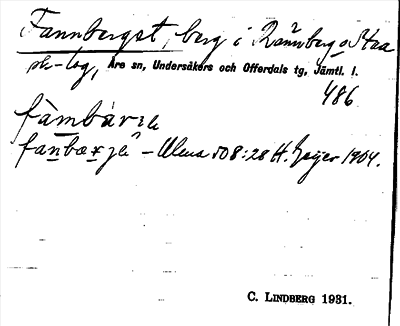 Fannberget, berg i Rännberg o Staa
sk-lag, Åre sn, Undersåkers och Offerdals tg, Jämtl. l.
486
fàmbárɿɛ
Ulma 508:28 H. Geijer 1904.
C. LINDBERG 1931.